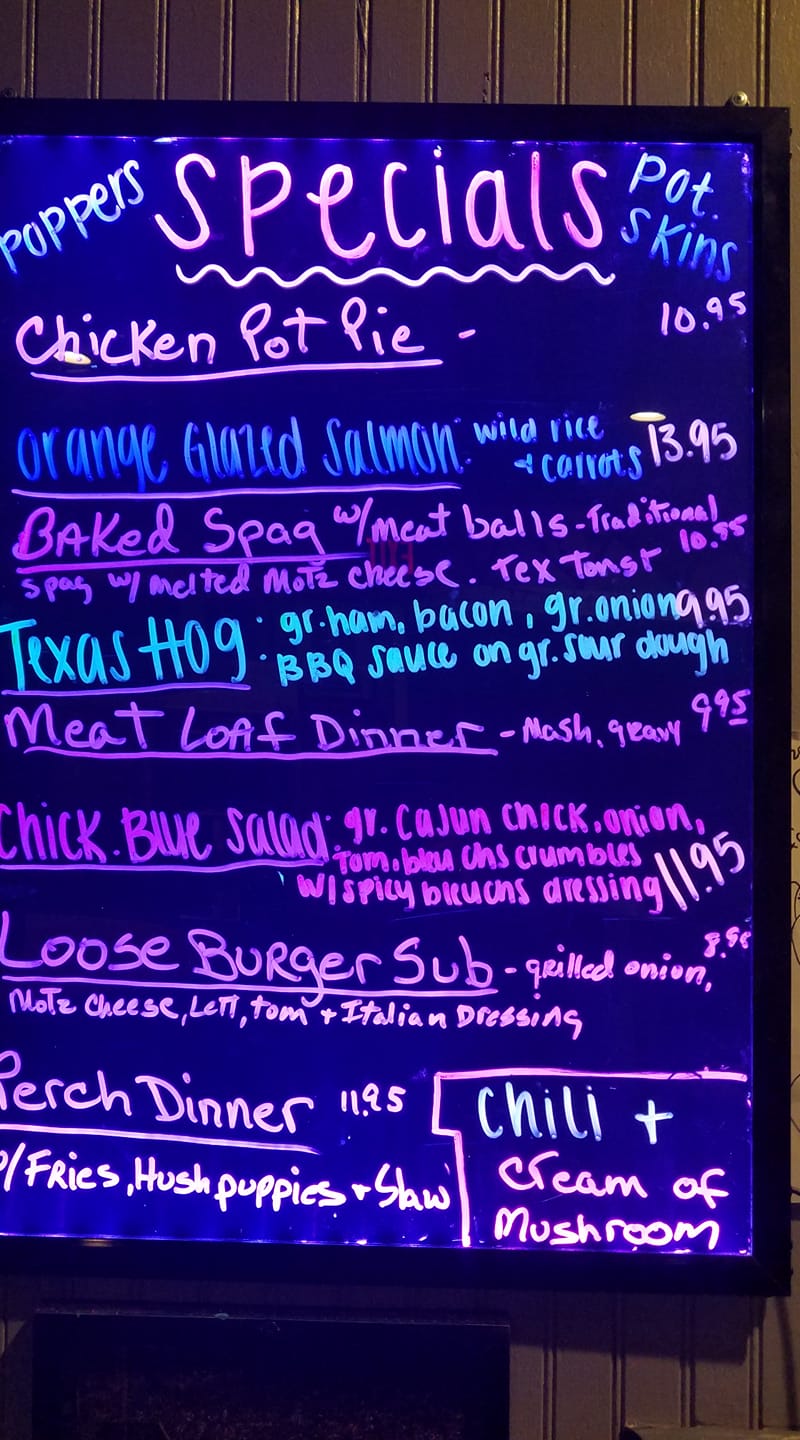 Poppers Specials Pot. Skins
Chicken Pot Pie - 10.95
Orange Glazed Salmon: wild rice
+ carrots 13.95
Baked Spag w/meat balls - Traditional
Spag w/ melted Motz cheese. Tex Tonst 10.95
Texas Hog: gr. ham, bacon, gr. onion 9.95
BBQ sauce on gr. sour dough
Meat Loaf Dinner - Mash, gravy 9.95
Chick. Blue Salad: gr. Cajun chick, onion,
tom. bleu chs crumbles
w/ spicy bleu chs dressing 11.95
Loose Burger Sub - grilled onion,
Motz Cheese, Lett, tom + Italian Dressing
Perch Dinner 11.95
w/ Fries, Hush puppies + Slaw
Chili +
Cream of
Mushroom